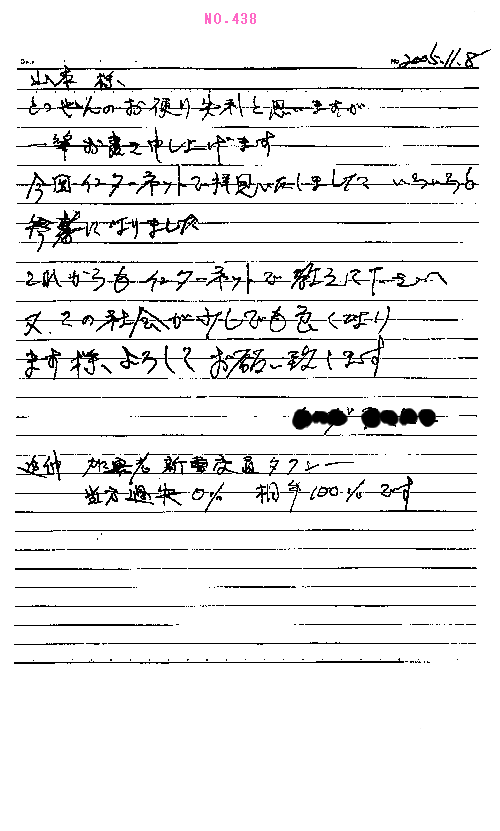 NO.438
No. 2005.11.8
山本 様、
とつぜんのお便り失礼と思いますが
一筆お書き申し上げます
今回インターネットで拝見いたしました いろいろと
参考になりました
これからもインターネットで教えて下さい
又、この社会が少しでも良くなり
ます様、よろしくお願い致します
追伸 加害者 新 交通タクシー
当方過失0% 相手100%です